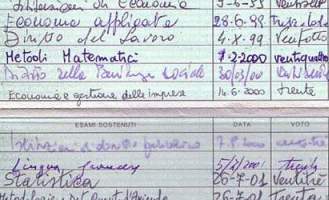 Istituzioni di Economia 9-6-99
Economia applicata 28.6.99
Diritto del Lavoro 4.X.99 Ventotto
Metodi Matematici 7-2-2000 ventiquattro
Diritto della Previdenza sociale 30/03/00
Economia e gestione delle imprese 14.6.2000 trenta
ESAMI SOSTENUTI DATA VOTO
Istituzioni di diritto pubblico
Lingua francese 5/2/2001 trenta
Statistica 26-7-01 ventitré
26-7-01 Trenta